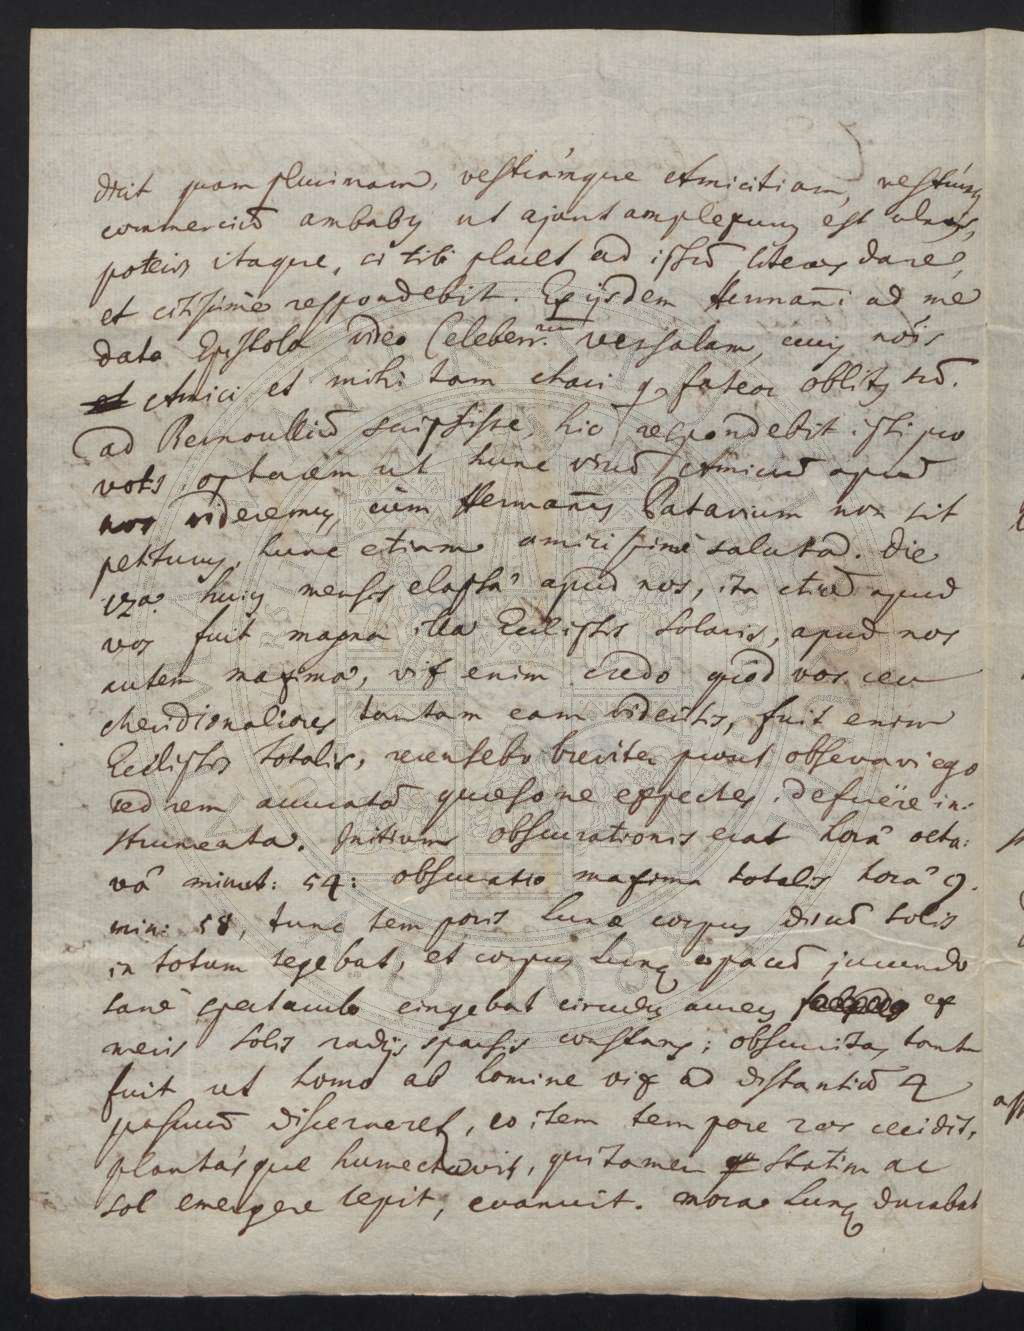 dicit quam plurimam, vestrámque Amicitiam, vestrúmq
commerciū ambabq ut ajunt amplexurq est ulnis,
poteris itaque, si tibi placet ad istū literas dare,
et citissimè respondebit. Ex ijsdem Hermañi ad me
data Epistola video Celeberr. versalam, cuiq nõis
et Amici et mihi tam chari fateor oblitq sū.
ad Bernoulliū scripsisse, hic respondebit isti pro
votis. optarem ut hunc virū Amicū apud
nos videremq, cùm Hermañq Patavium non sit
petiturq, hunc etiam amicissimè saluta. Die
12a. huiq mensis elapsâ apud nos, ita etiā apud
vos fuit magna illa Eclipsis solaris, apud nos
autem maxima, vix enim credo quòd vos ceu
Meridionaliores tantam eam videritis, fuit enim
Eclipsis totalis, recensebo breviter prout observavi ego
sed rem accuratā quaeso ne expectes. defuëre in:
strumenta. Initium obscurationis erat horâ octa:
vâ minut: 54: obscuratio maxima totalis horâ 9.
min: 58, tunc temporis Lunae corpus discū solis
in totum tegebat, et corpus Lunę opacū jucundo
sanè spectaculo cingebat circulq aureq ex
meris solis radijs sparsis constans; obscuritas tanta
fuit ut homo ab homine vix ad distantiā 4
passuū discerneret, eo item tempore ros cecidit,
plantásque humectavit, qui tamen statim ac
sol emergere cepit, evanuit. mora Lunę durabat